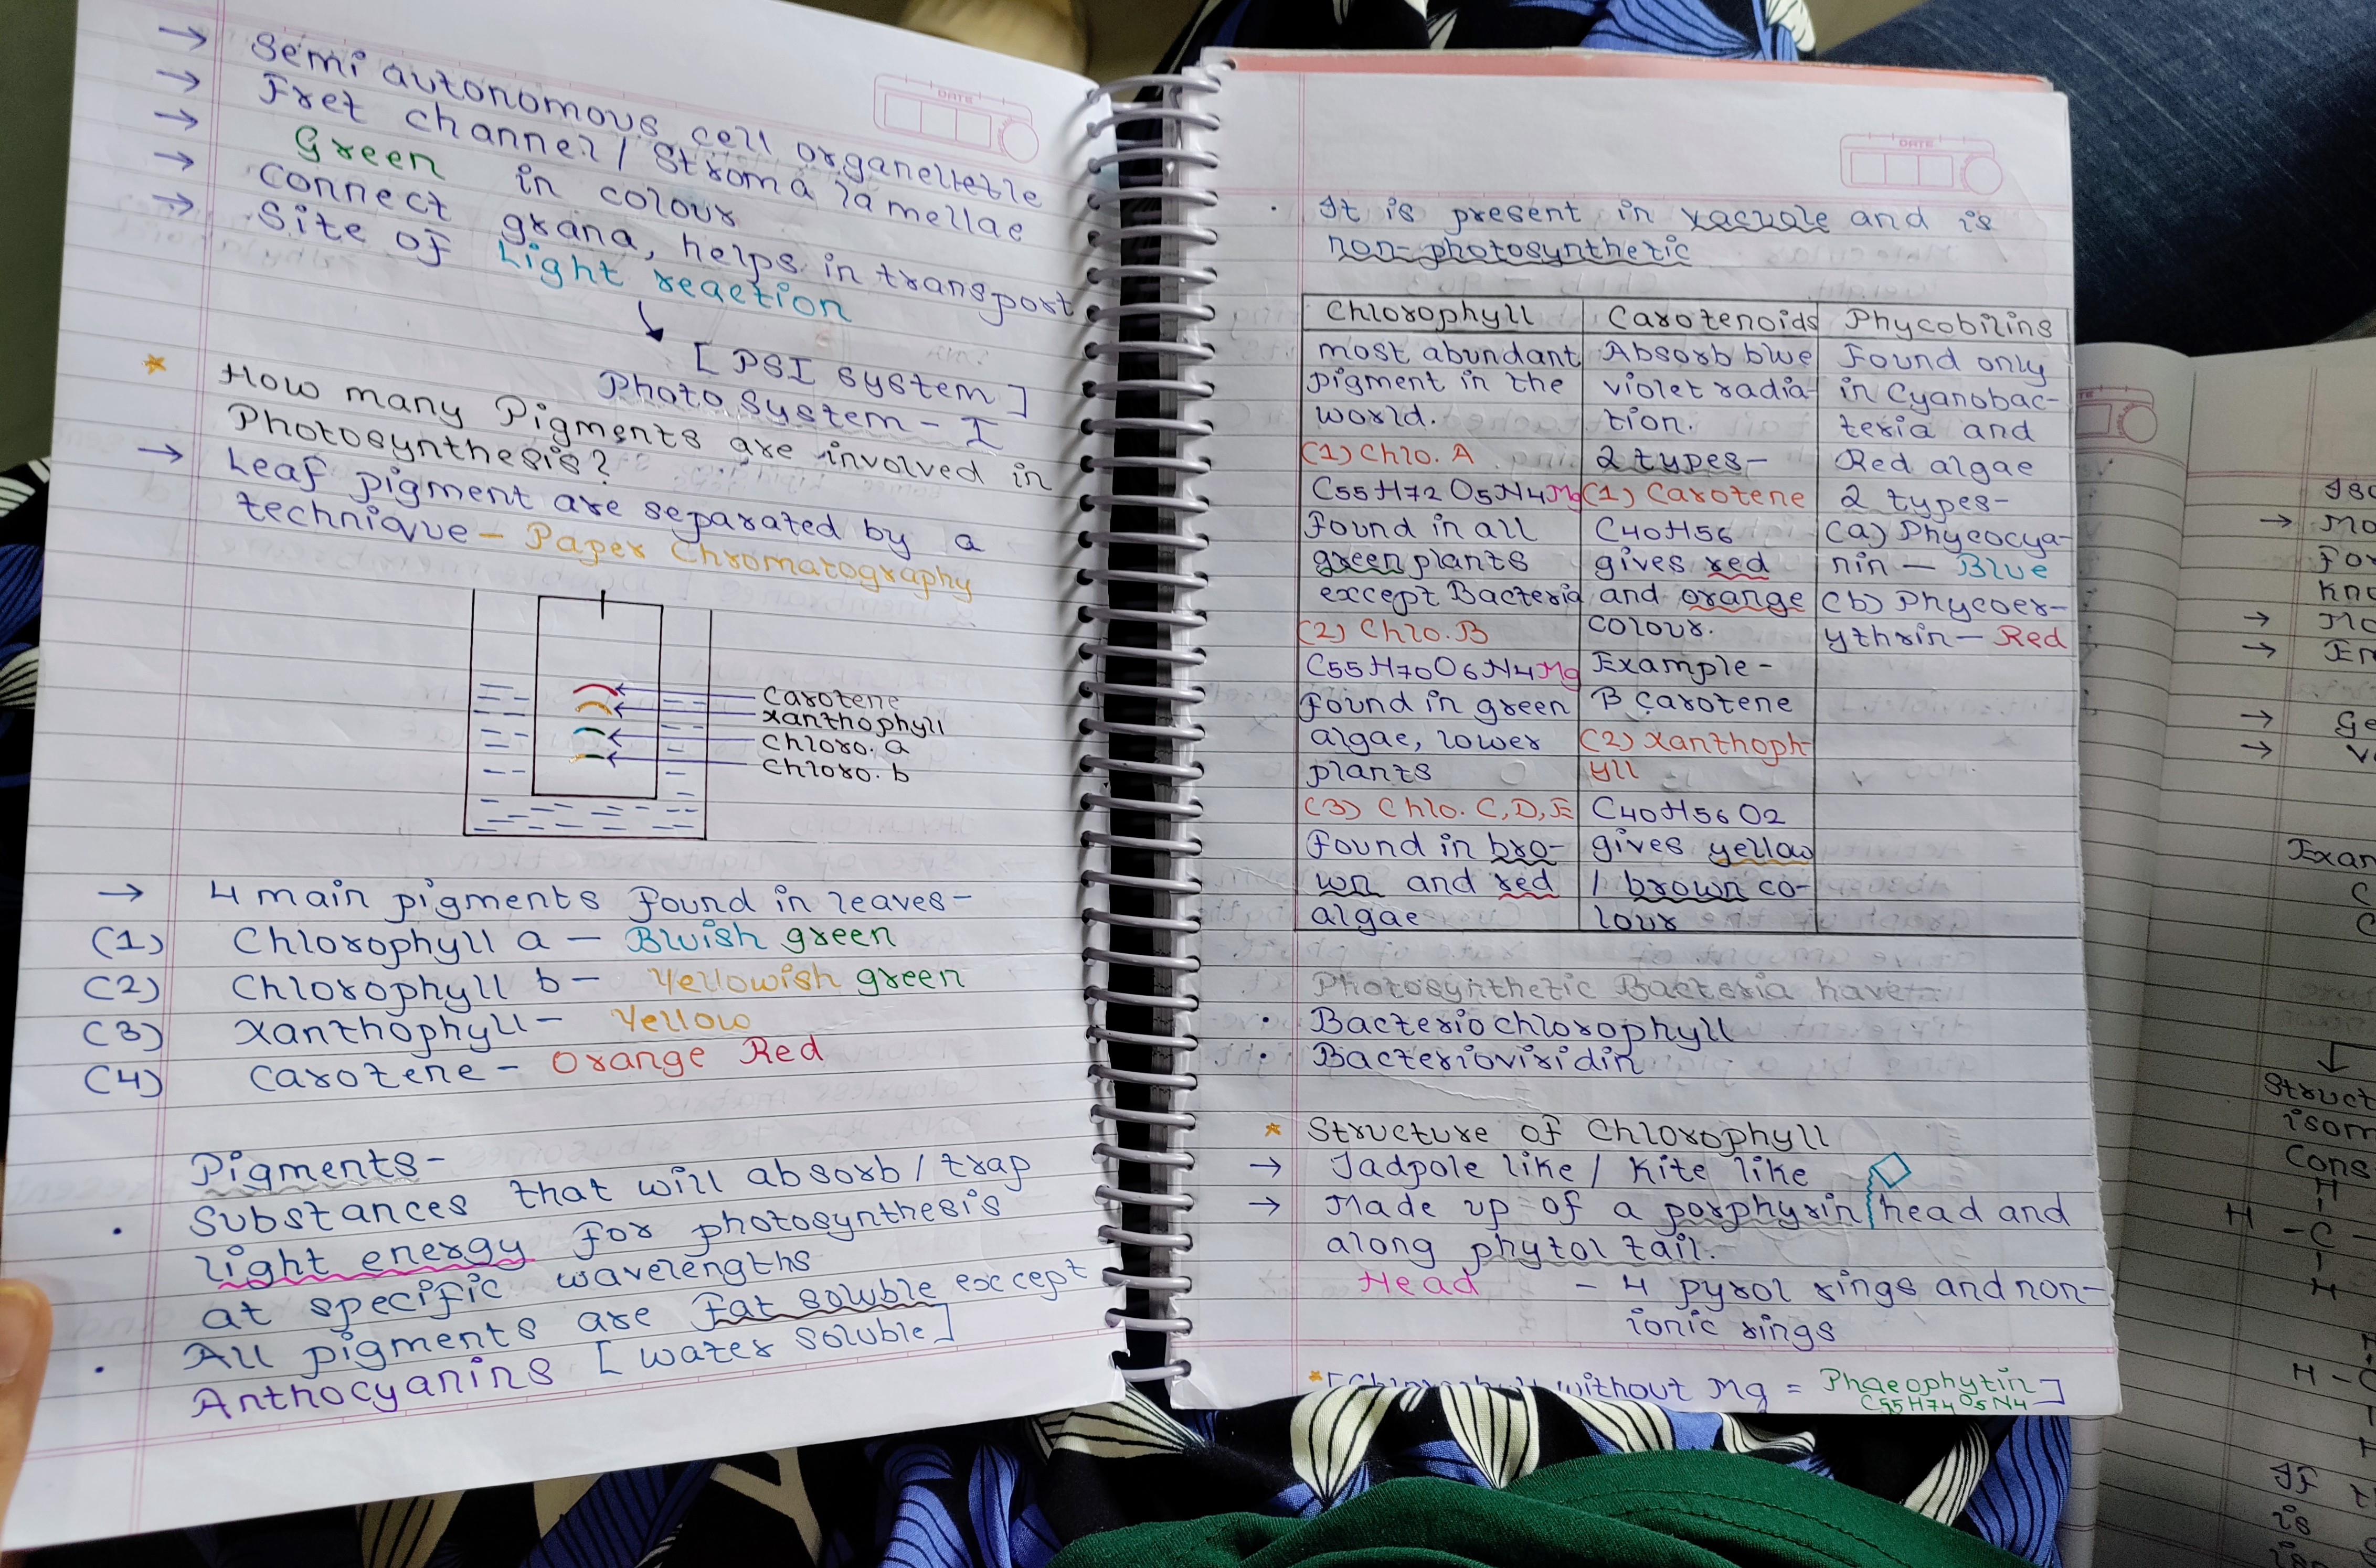 → Semi autonomous cell organelletle
→ Fret channel / Stroma lamellae
→ Green in colour
→ Connect grana, helps in transport
→ Site of Light reaction
↓
[ PSI system ]
Photo system - I
* How many Pigments are involved in
Photosynthesis?
→ Leaf pigment are separated by a
technique - Paper Chromatography
Carotene
Xanthophyll
Chloro. a
Chloro. b
→ 4 main pigments found in leaves-
(1) Chlorophyll a - Bluish green
(2) Chlorophyll b - Yellowish green
(3) Xanthophyll - Yellow
(4) Carotene - Orange Red
Pigments-
• Substances that will absorb / trap
light energy for photosynthesis
at specific wavelengths
• All pigments are fat soluble except
Anthocyanins [ water soluble ]
DATE
DATE
• It is present in vacuole and is
non-photosynthetic
Chlorophyll
most abundant
pigment in the
world.
(1) Chlo. A
C55H72O5N4Mg
Found in all
green plants
except Bacteria
(2) Chlo. B
C55H70O6N4Mg
Found in green
algae, lower
plants
(3) Chlo. C, D, E
Found in bro-
wn and red
algae
Carotenoids
Absorb blue
violet radia-
tion.
2 types-
(1) Carotene
C40H56
gives red
and orange
colour.
Example-
B Carotene
(2) Xanthoph-
yll
C40H56O2
gives yellow
/ brown co-
lour
Phycobilins
Found only
in Cyanobac-
teria and
Red algae
2 types-
(a) Phycocya-
nin - Blue
(b) Phycoer-
ythrin - Red
Photosynthetic Bacteria have-
• Bacteriochlorophyll
• Bacterioviridin
* Structure of Chlorophyll
→ Tadpole like / Kite like
→ Made up of a porphyrin head and
along phytol tail.
Head - 4 pyrol rings and non-
ionic rings
* without Mg = Phaeophytin ]
C55H74O5N4
→
→
→
→
→
Struct
isom
Cons
H
H - C -
H
H - C
H
If
is